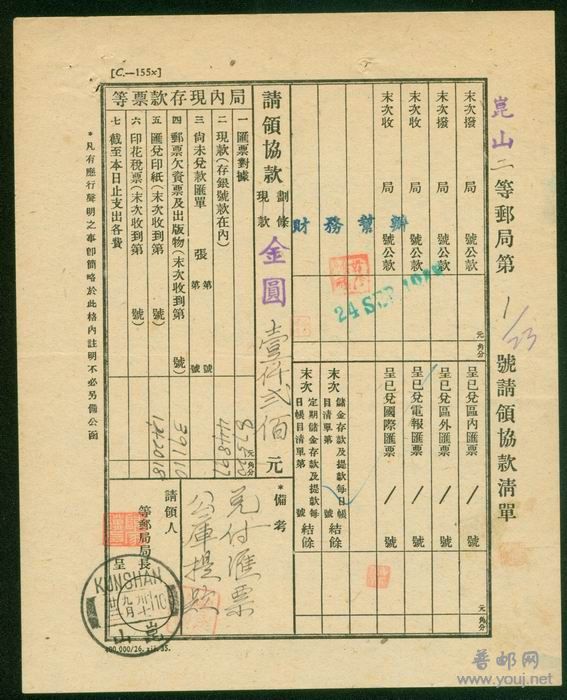 [C.—155x]
崑山二等郵局第 1/23 號請領協款清單
末次撥 局 號公款
末次撥 局 號公款
末次收 局 號公款
末次收 局 號公款
元角分
財務幫辦
24 SEP
呈已兌區內匯票 / 號
呈已兌區外匯票 / 號
呈已兌電報匯票 / 號
呈已兌國際匯票 / 號
元角分
末次 儲金存款及提款每日帳目清單第 號 結餘
末次 定期儲金存款及提款每日帳目清單第 號 結餘
請領協款 劃條 現款 金圓壹仟弍佰元
*備考
兌付匯票
公庫提款
局內現存款票等
元角分
一 匯票對據
二 現款(存銀號款在內)
三 尚未兌款匯單 張 第 號 第 號
四 郵票欠資票及出版物(末次收到第 號)
五 匯兌印紙(末次收到第 號)
六 印花稅票(末次收到第 號)
七 截至本日止支出各費
請領人
等郵局局長
呈
KUNSHAN
崑山
*凡有應行聲明之事卽簡略於此格內註明不必另備公函
普邮网
www.youj.net